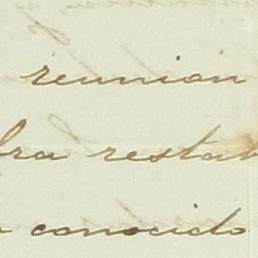 reunion
bra restab
conocido